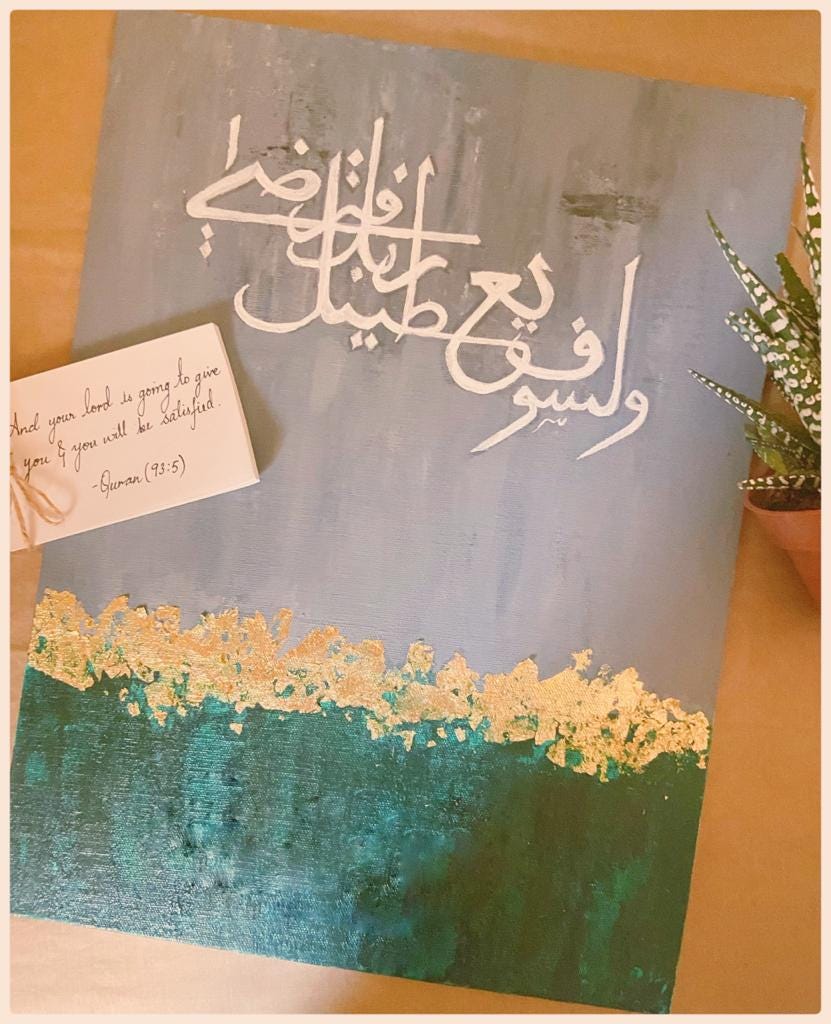 ولسوف يعطيك ربك فترضى
And your lord is going to give
you & you will be satisfied.
-Quran (93:5)